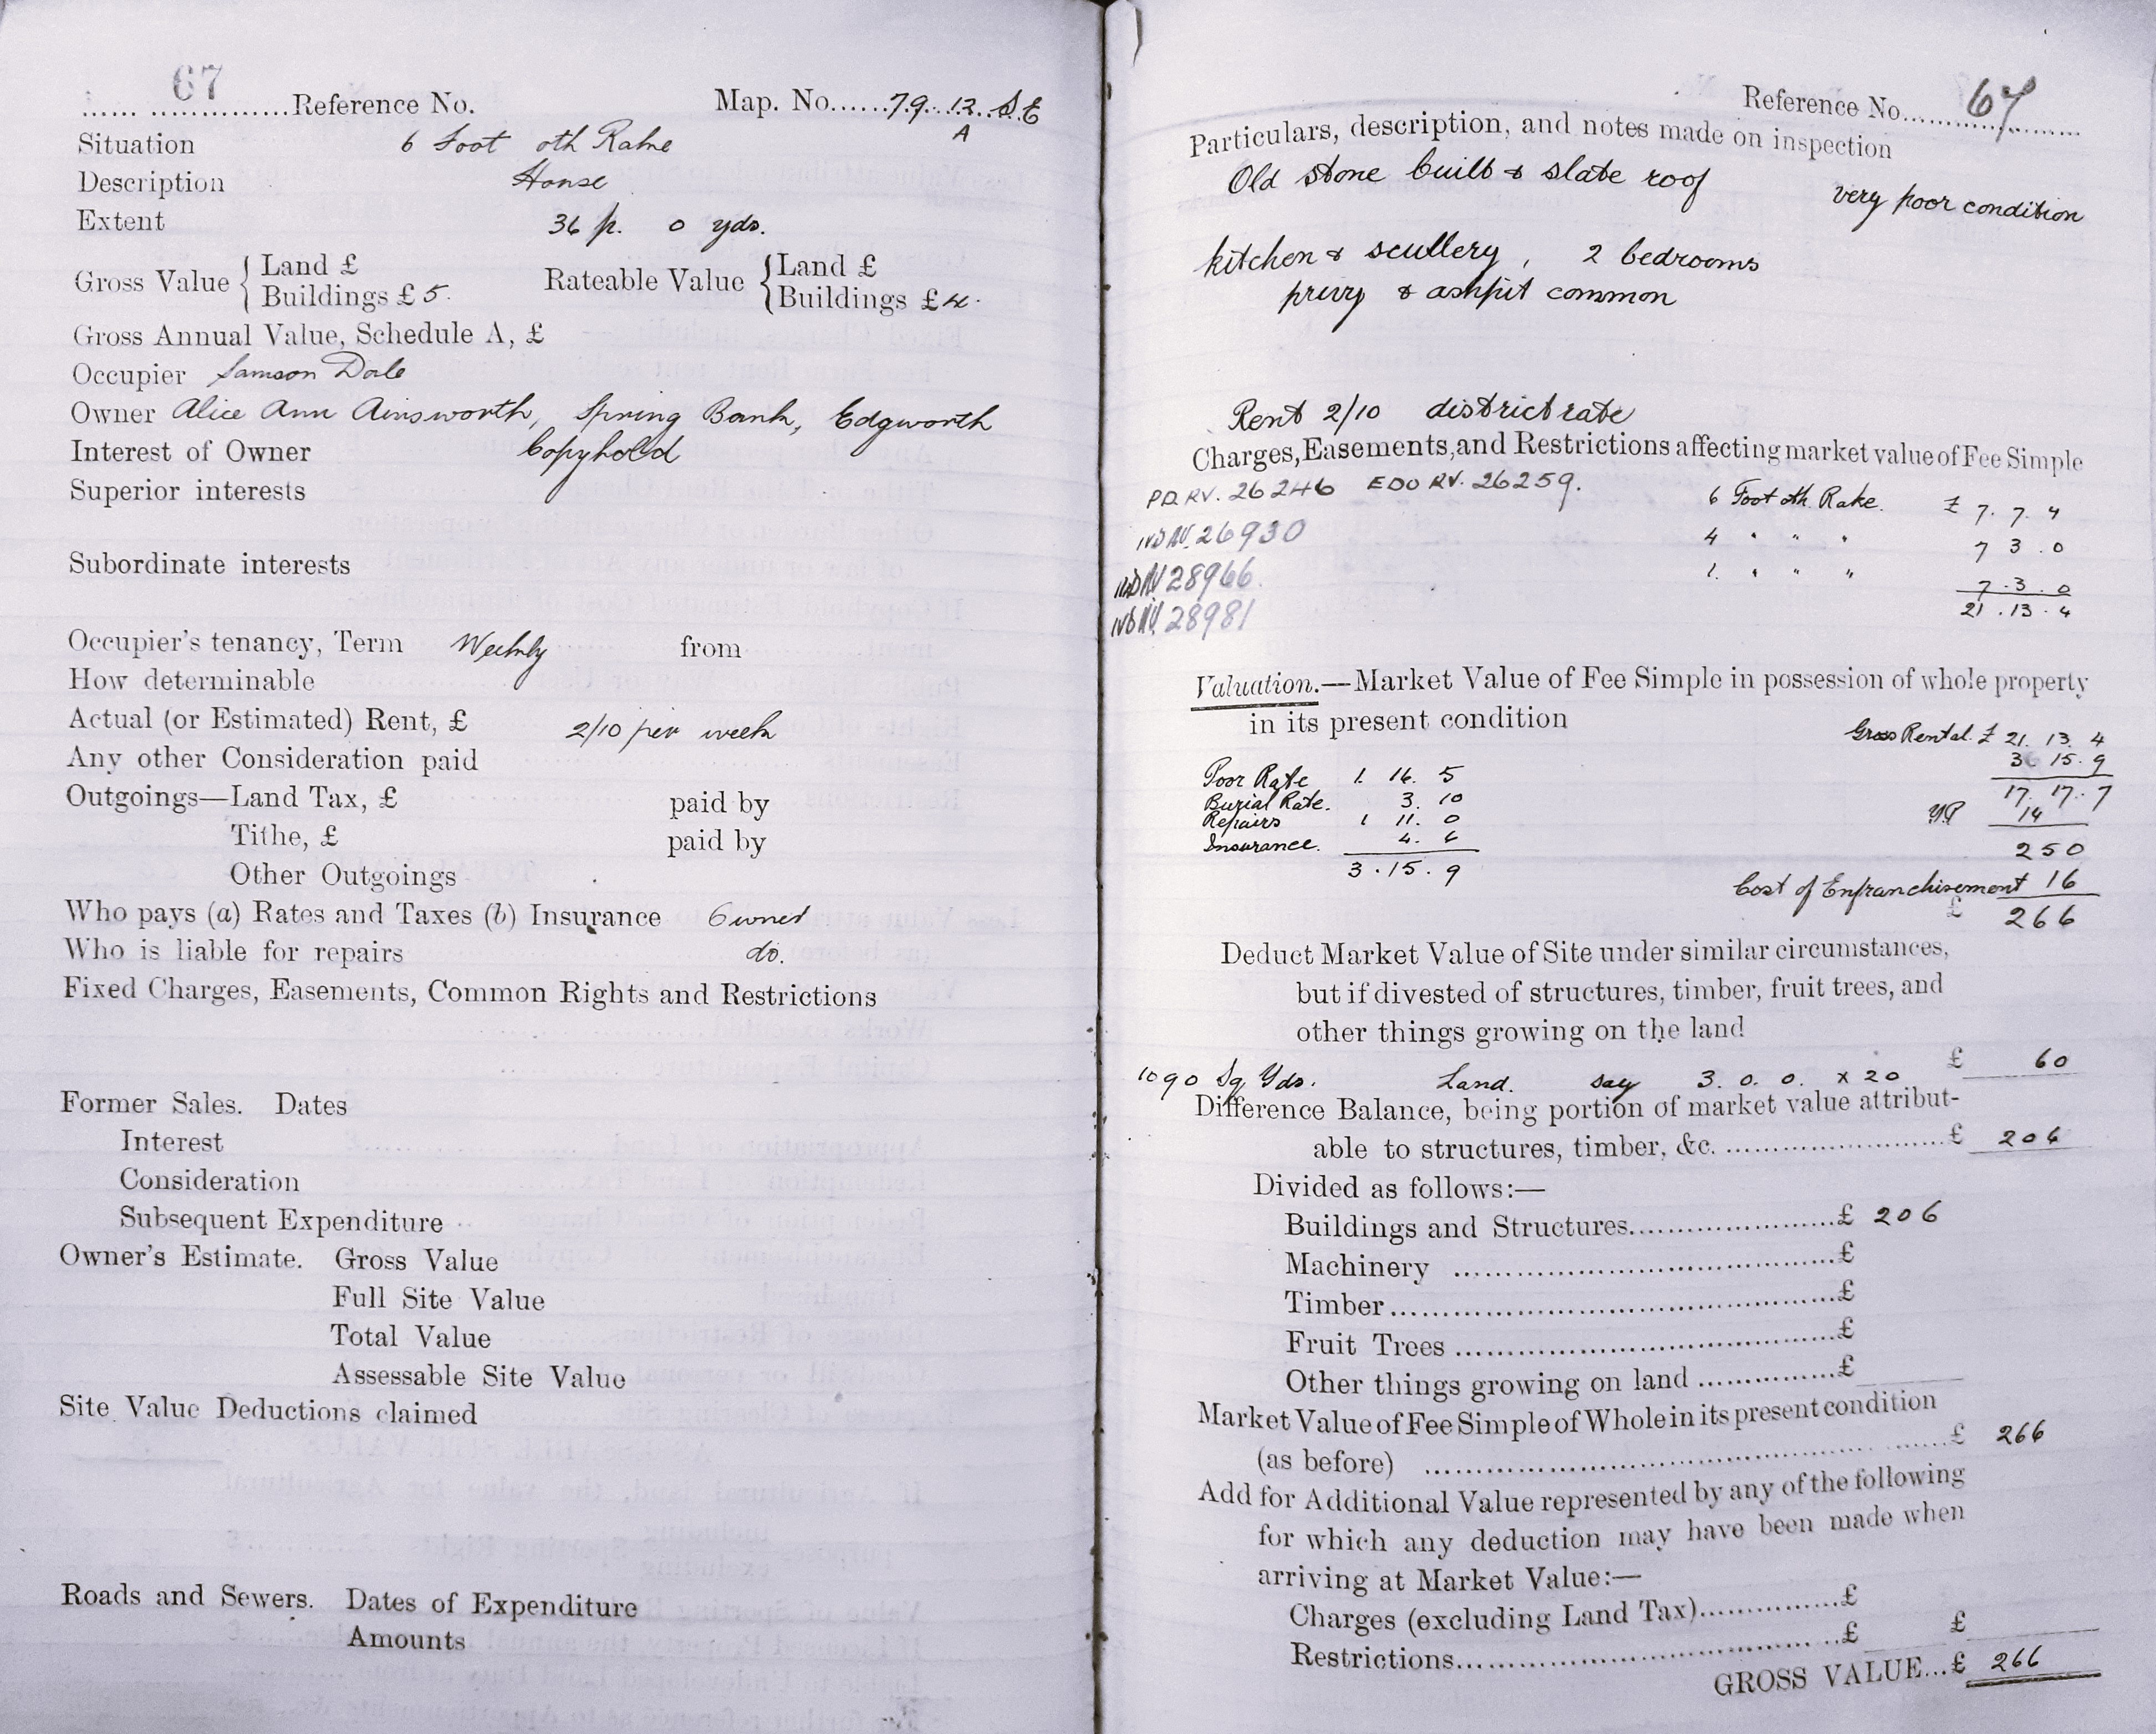 67
...... ..............Reference No. Map. No......79..12..S.E
A
Situation 6 Foot oth Rake
Description House
Extent 36 p. 0 yds.
Gross Value { Land £ Rateable Value { Land £
Buildings £ 5. Buildings £ 4.
Gross Annual Value, Schedule A, £
Occupier Samson Dale
Owner Alice Ann Ainsworth, Spring Bank, Edgworth
Interest of Owner Copyhold
Superior interests
Subordinate interests
Occupier's tenancy, Term Weekly from
How determinable
Actual (or Estimated) Rent, £ 2/10 per week
Any other Consideration paid
Outgoings—Land Tax, £ paid by
Tithe, £ paid by
Other Outgoings
Who pays (a) Rates and Taxes (b) Insurance Owner
Who is liable for repairs do.
Fixed Charges, Easements, Common Rights and Restrictions
Former Sales. Dates
Interest
Consideration
Subsequent Expenditure
Owner's Estimate. Gross Value
Full Site Value
Total Value
Assessable Site Value
Site Value Deductions claimed
Roads and Sewers. Dates of Expenditure
Amounts
Reference No. 67
Particulars, description, and notes made on inspection
Old stone built & slate roof very poor condition
kitchen & scullery, 2 bedrooms
privy & ashpit common
Rent 2/10 district rate
Charges, Easements, and Restrictions affecting market value of Fee Simple
PD. RV. 26246 EDO RV. 26259. 6 Foot oth. Rake. £ 7. 7. 4
26930 4 " " " 7 3. 0
28966. 1. " " " 7. 3. 0
28981 21. 13. 4
Valuation.—Market Value of Fee Simple in possession of whole property
in its present condition
Gross Rental. £ 21. 13. 4
3 15. 9
Poor Rate 1. 16. 5
17. 17. 7
Burial Rate. 3. 10
YP 14
Repairs 1 11. 0
Insurance. 4. 6
250
3. 15. 9
Cost of Enfranchisement 16
£ 266
Deduct Market Value of Site under similar circumstances,
but if divested of structures, timber, fruit trees, and
other things growing on the land
1090 Sq Yds. Land. say 3. 0. 0. x 20 £ 60
Difference Balance, being portion of market value attribut-
able to structures, timber, &c. ........................£ 206
Divided as follows:—
Buildings and Structures......................£ 206
Machinery ........................................£
Timber................................................£
Fruit Trees ........................................£
Other things growing on land ...............£
Market Value of Fee Simple of Whole in its present condition
(as before) ................................................£ 266
Add for Additional Value represented by any of the following
for which any deduction may have been made when
arriving at Market Value:—
Charges (excluding Land Tax)...............£
Restrictions..........................................£ £
GROSS VALUE...£ 266